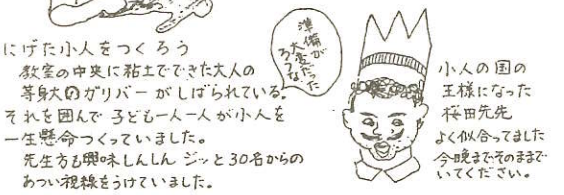 にげた小人をつくろう
教室の中央に粘土でできた大人の
等身大のガリバーがしばられている。
それを囲んで子ども一人一人が小人を
一生懸命つくっていました。
先生方も興味しんしん ジッと30名からの
あつい視線をうけていました。
準備が
大変だった
ろうな
小人の国の
王様になった
桜田先先
よく似合ってました
今晩までそのままで
いてください。